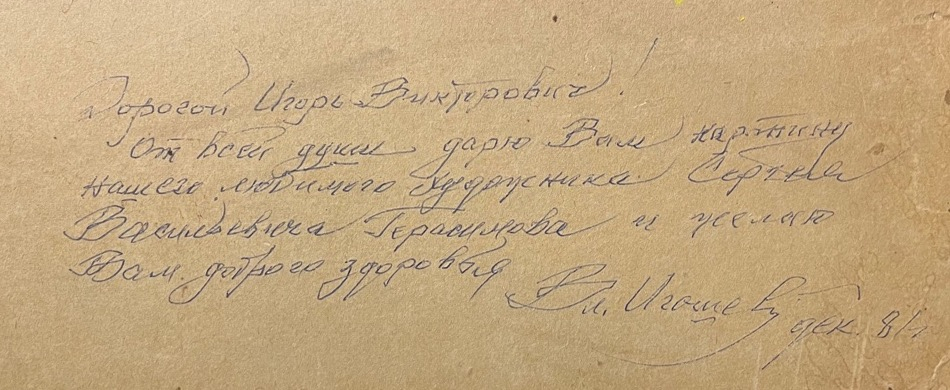 Дорогой Игорь Викторович!
От всей души дарю Вам картину
нашего любимого художника Сергея
Васильевича Герасимова и желаю
Вам доброго здоровья
Вл. Игошев дек. 81г.